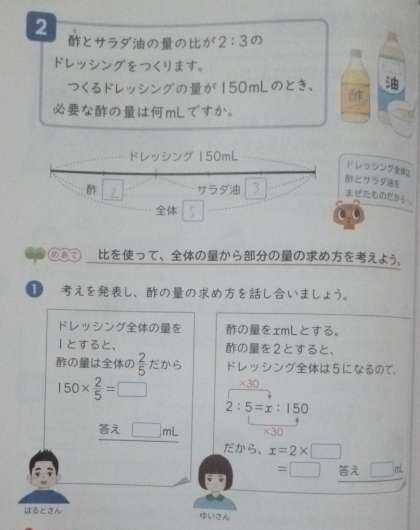 2
酢とサラダ油の量の比が2:3の
ドレッシングをつくります。
つくるドレッシングの量が150mLのとき、
必要な酢の量は何mLですか。
酢
油
ドレッシング 150mL
酢 2 サラダ油 3
全体 5
ドレッシング全体は
酢とサラダ油を
まぜたものだから…
めあて 比を使って、全体の量から部分の量の求め方を考えよう。
1 考えを発表し、酢の量の求め方を話し合いましょう。
ドレッシング全体の量を
1とすると、
酢の量は全体の2/5だから
150×2/5=□
答え □mL
はるとさん
酢の量をxmLとする。
酢の量を2とすると、
ドレッシング全体は5になるので、
×30
2:5=x:150
×30
だから、x=2×□
=□ 答え □mL
ゆいさん